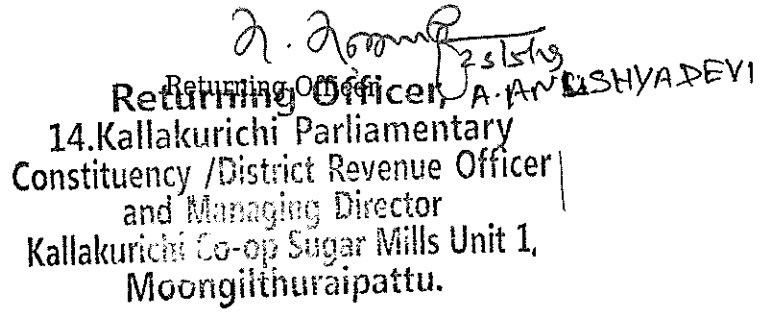 23/5/19
A. ANUSHYADEVI
Returning Officer
Returning Officer,
14.Kallakurichi Parliamentary
Constituency /District Revenue Officer
and Managing Director
Kallakurichi Co-op Sugar Mills Unit 1,
Moongilthuraipattu.